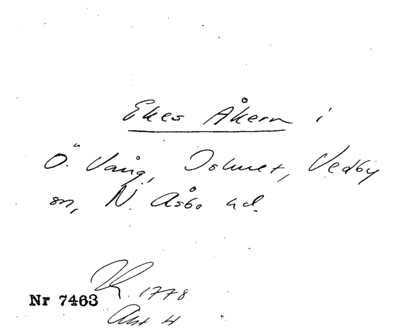 Ekes Åkern i
Ö. Vång, Tolunet, Vedby
sn, N. Åsbo hd.
K. 1778
Nr 7463
Akt 4